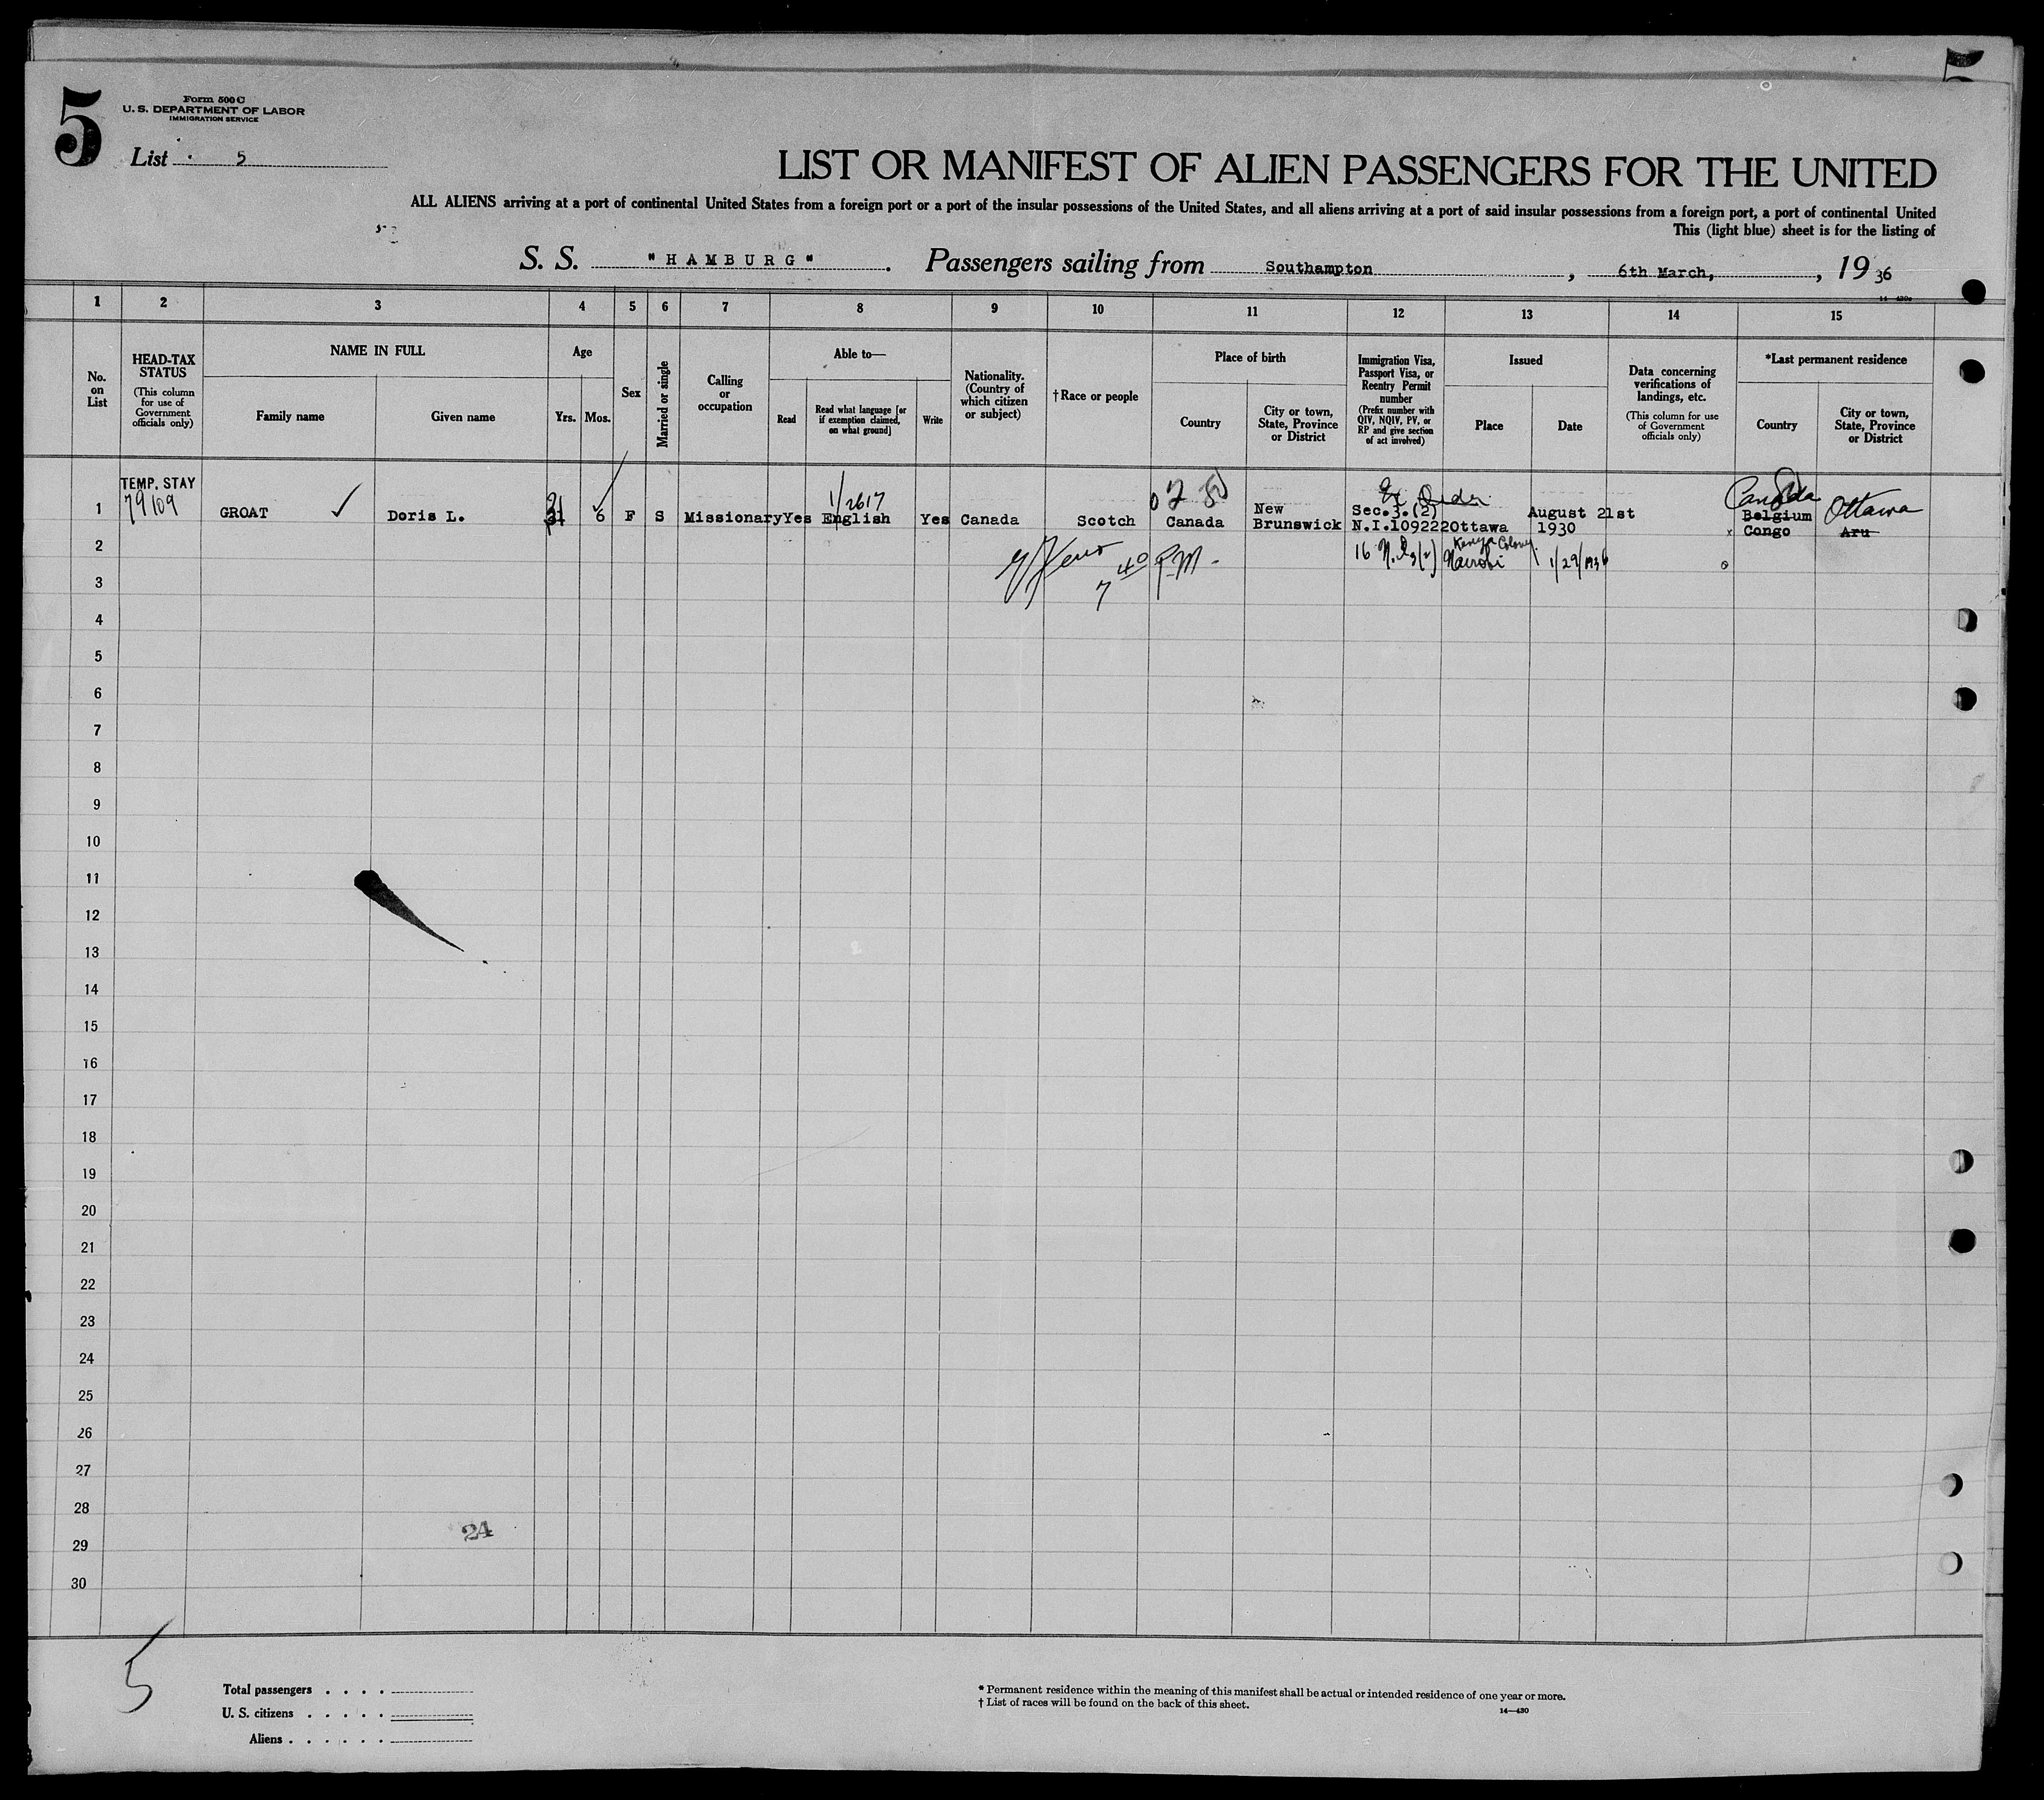 5
5
Form 500 C
U. S. DEPARTMENT OF LABOR
IMMIGRATION SERVICE
List 5
LIST OR MANIFEST OF ALIEN PASSENGERS FOR THE UNITED
ALL ALIENS arriving at a port of continental United States from a foreign port or a port of the insular possessions of the United States, and all aliens arriving at a port of said insular possessions from a foreign port, a port of continental United
This (light blue) sheet is for the listing of
S. S. "HAMBURG". Passengers sailing from Southampton, 6th March, , 19 36
1 2 3 4 5 6 7 8 9 10 11 12 13 14 15
No. on List
HEAD-TAX STATUS
(This column for use of Government officials only)
NAME IN FULL
Family name
Given name
Age
Yrs.
Mos.
Sex
Married or single
Calling or occupation
Able to—
Read
Read what language [or if exemption claimed, on what ground]
Write
Nationality. (Country of which citizen or subject)
†Race or people
Place of birth
Country
City or town, State, Province or District
Immigration Visa, Passport Visa, or Reentry Permit number
(Prefix number with QIV, NQIV, PV, or RP and give section of act involved)
Issued
Place
Date
Data concerning verifications of landings, etc.
(This column for use of Government officials only)
*Last permanent residence
Country
City or town, State, Province or District
TEMP. STAY
79109
1 GROAT Doris L. 31 6 F S Missionary Yes English Yes Canada Scotch Canada New Brunswick Sec.3.(2) N.I.109222 Ottawa August 21st 1930 Belgium Congo Aru
1/2617
Canada Ottawa
Kenya Colony
Nairobi 1/29/1936
7 40 P.M.
2
3
4
5
6
7
8
9
10
11
12
13
14
15
16
17
18
19
20
21
22
23
24
25
26
27
28
29
30
24
5
Total passengers . . . .
U. S. citizens . . . . .
Aliens . . . . . .
* Permanent residence within the meaning of this manifest shall be actual or intended residence of one year or more.
† List of races will be found on the back of this sheet.
14—430